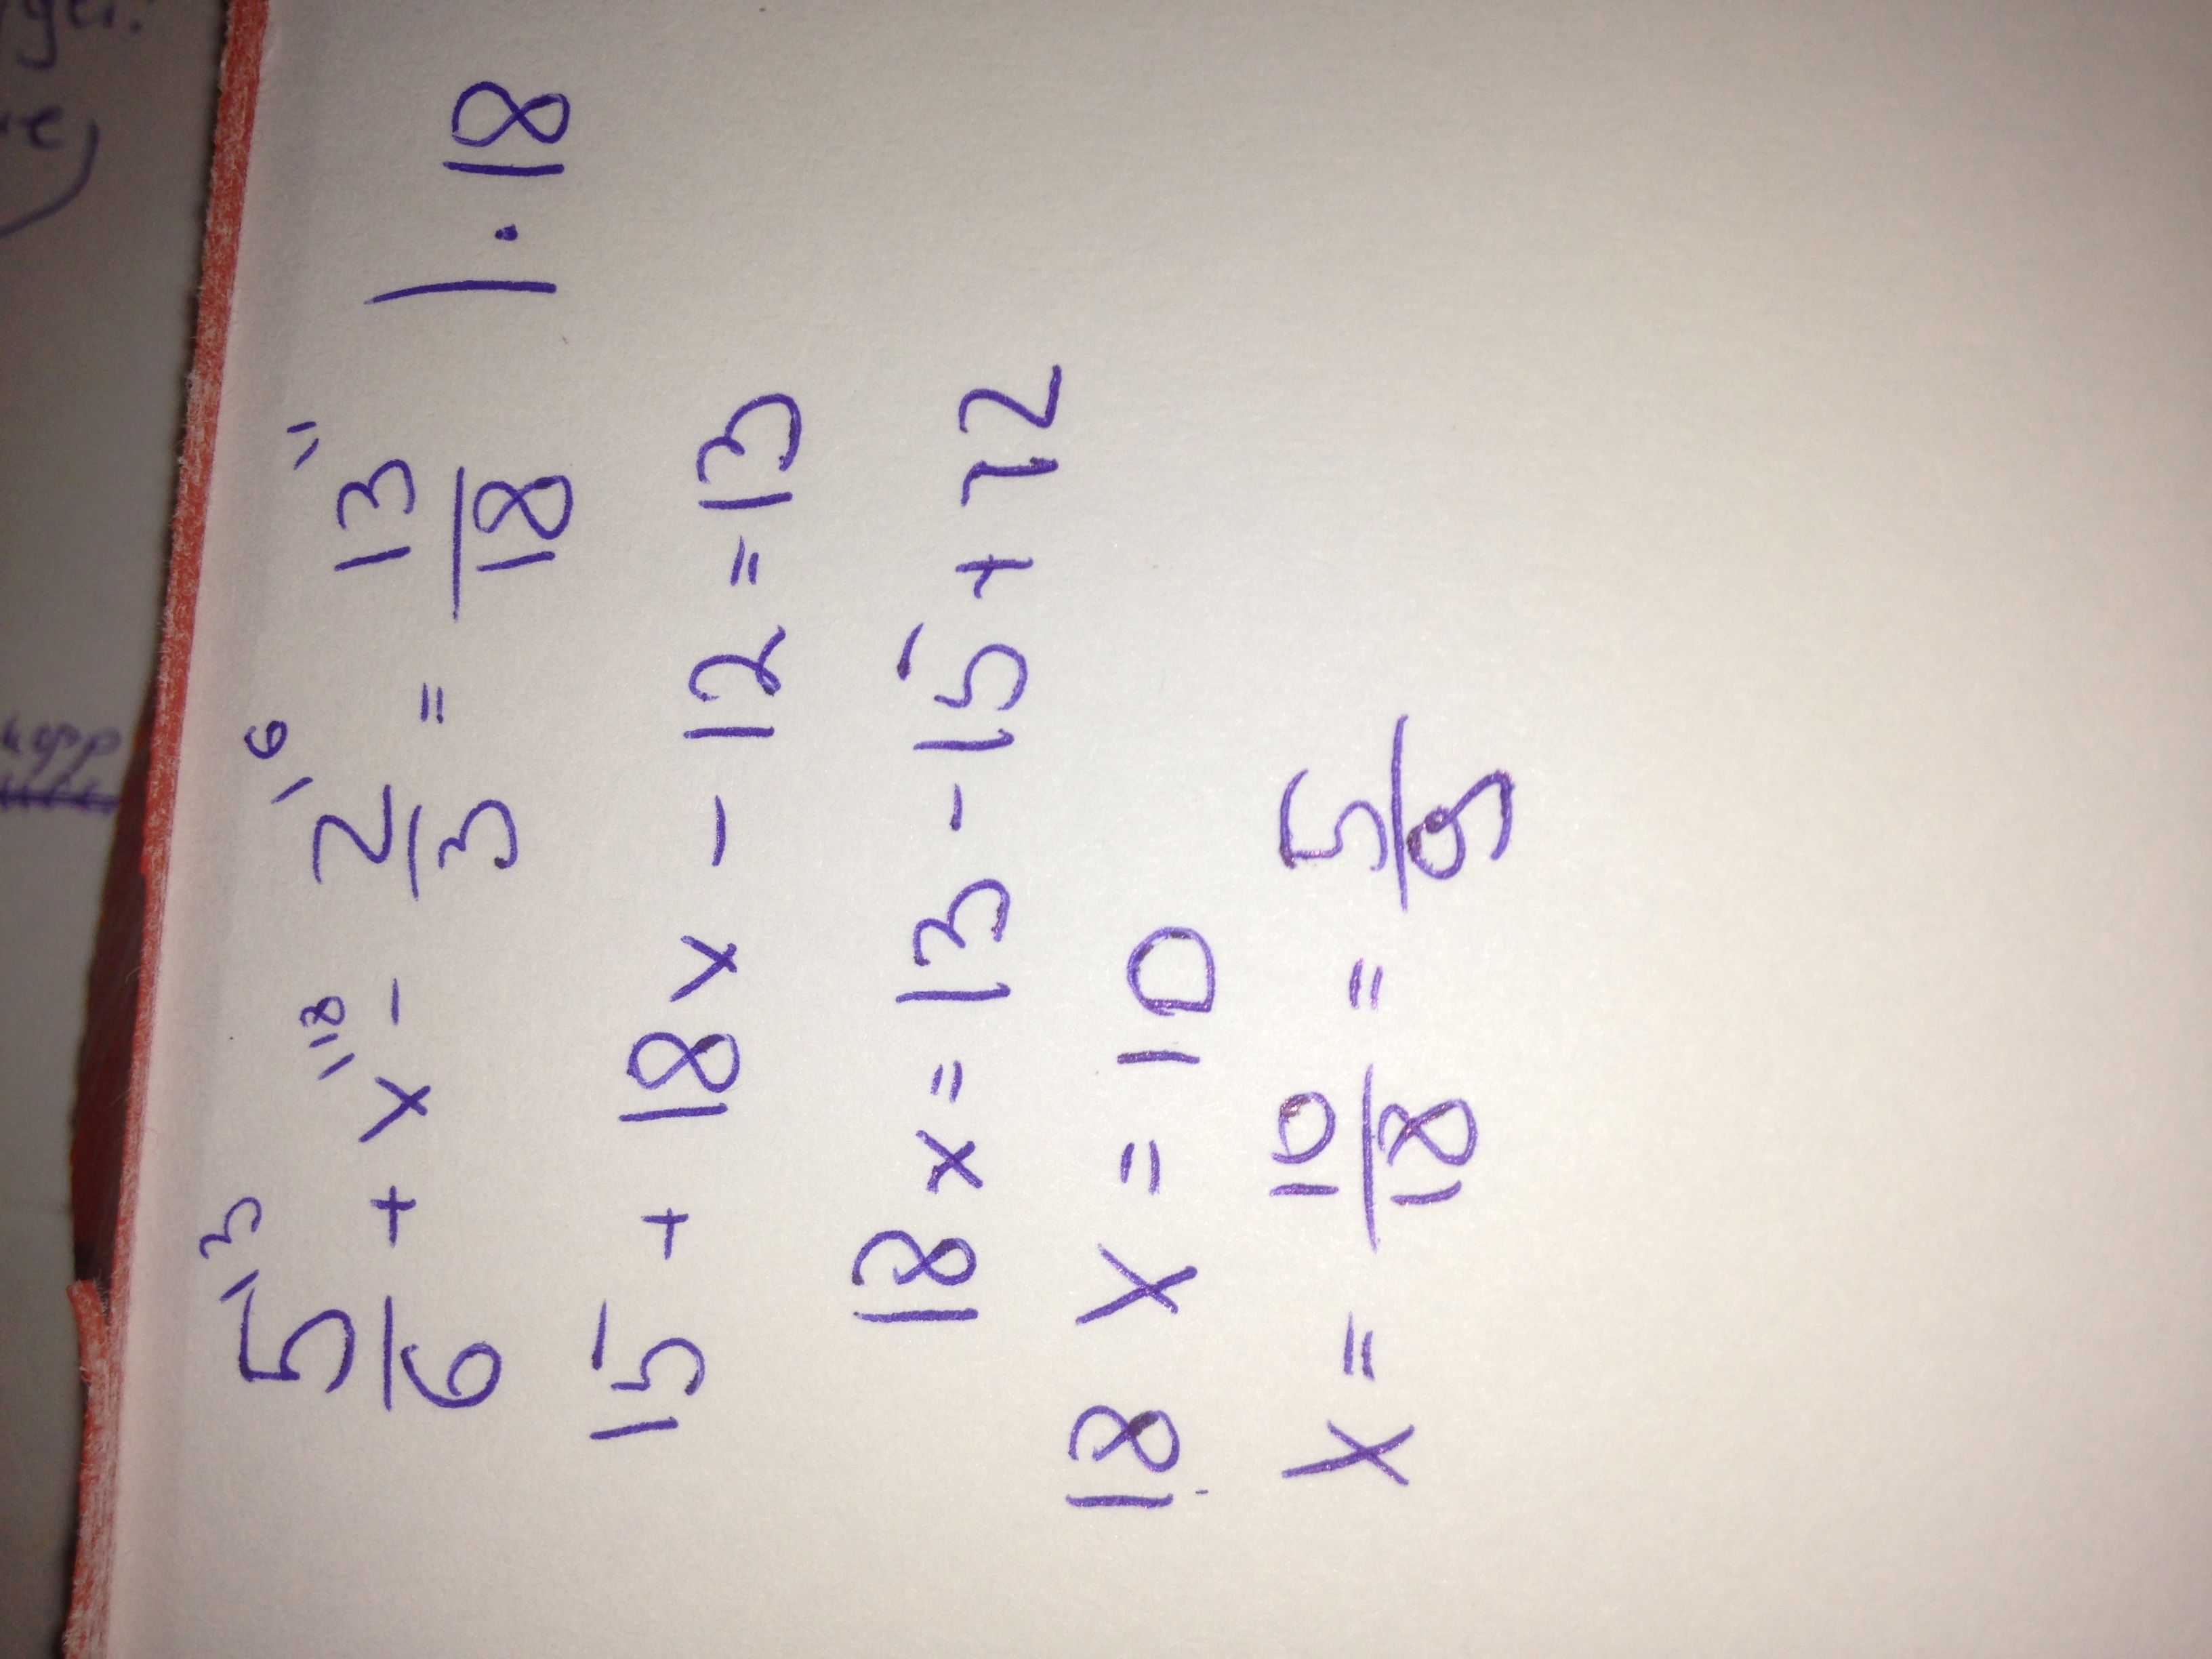 5/6 \3 + x \18 - 2/3 \6 = 13/18 \1 | · 18
15 + 18x - 12 = 13
18x = 13 - 15 + 12
18x = 10
x = 10/18 = 5/9